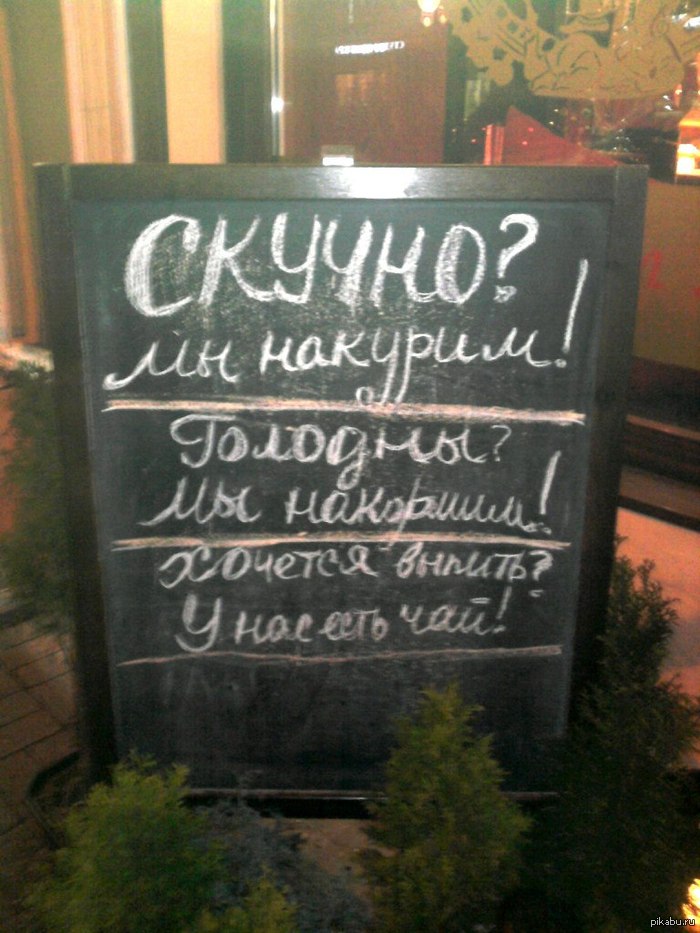 Скучно?
мы накурим!
Голодны?
Мы накормим!
Хочется выпить?
У нас есть чай!
pikabu.ru